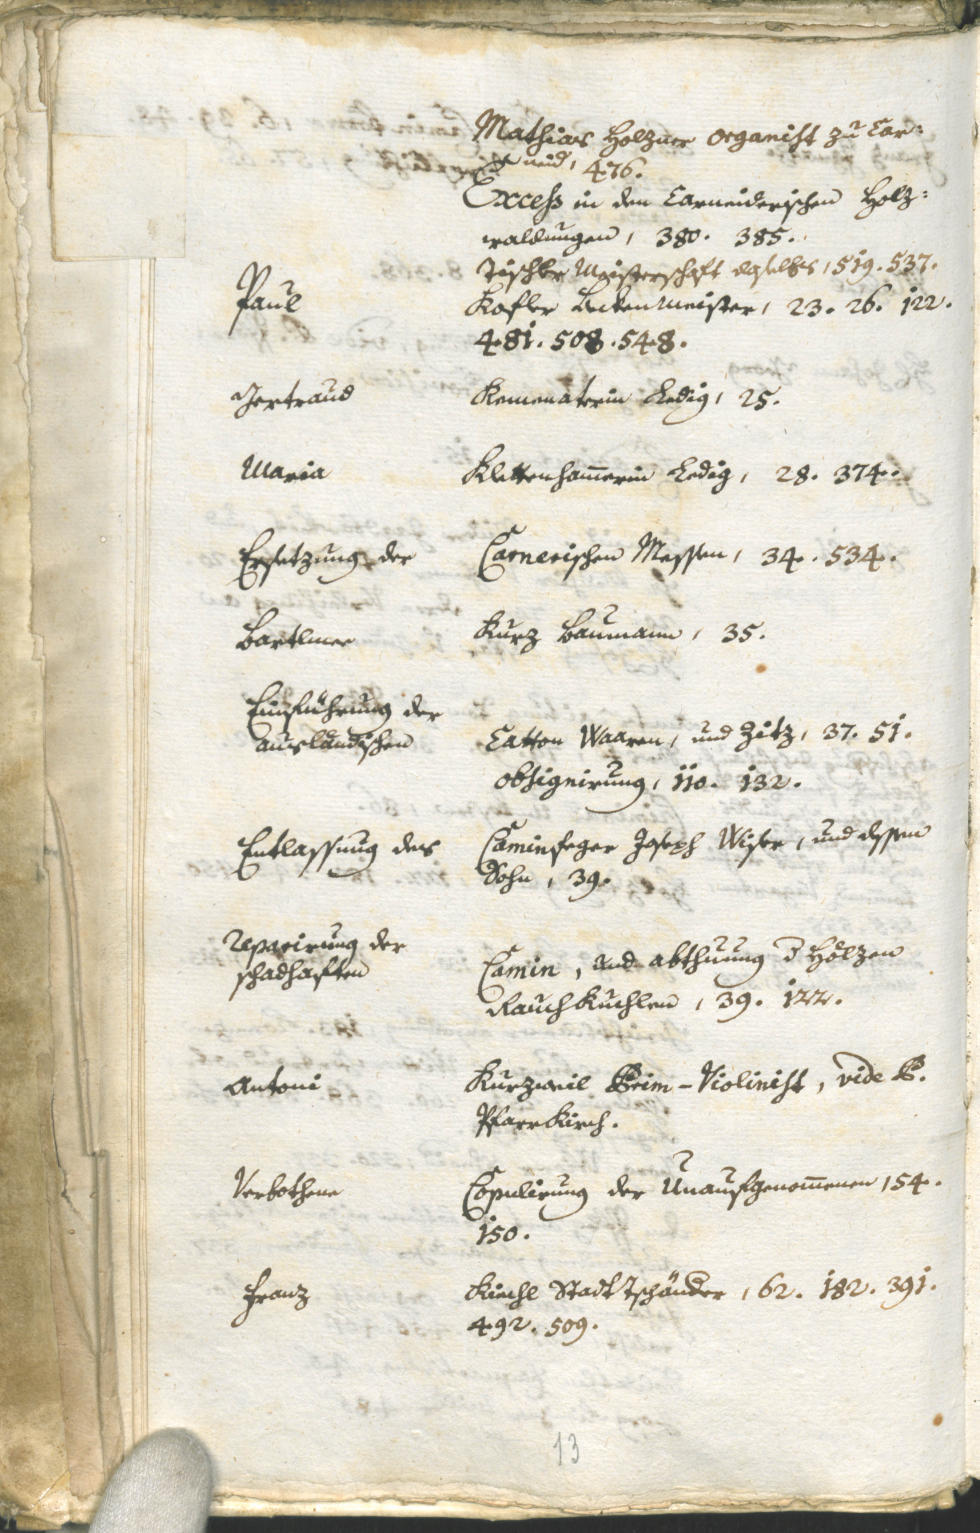 Mathias Holzner Organist zu Car¬
neid, 476.
Excess in den Carneiderischen Holz¬
waldungen, 380. 385.
Tischler Meisterschaft daselbs, 519. 537.
Paul Kofler Beckenmeister, 23. 26. 122.
481. 508. 548.
Gertraud Kemenaterin Ledig, 25.
Maria Klettenhamerin Ledig, 28. 374.
Ersetzung der Carnerischen Messen, 34. 534.
Bartlmee Kurz Baumann, 35.
Einführung der
ausländischen Catton Waaren, und Zitz, 37. 51.
obsignirung, 110. 132.
Entlassung des Caminfeger Joseph Wister, und dessen
Sohn, 39.
Reparirung der
schadhaften Camin, und abthuung d Hölzen
Rauch Kuchlen, 39. 122.
Antoni Kurzweil Prim-Violinist, vide P.
Pfarrkirch.
Verbothene Copulirung der Unaufgenommenen, 54.
150.
Franz Kiechl Stadt Tschänder, 62. 182. 391.
492. 509.
13